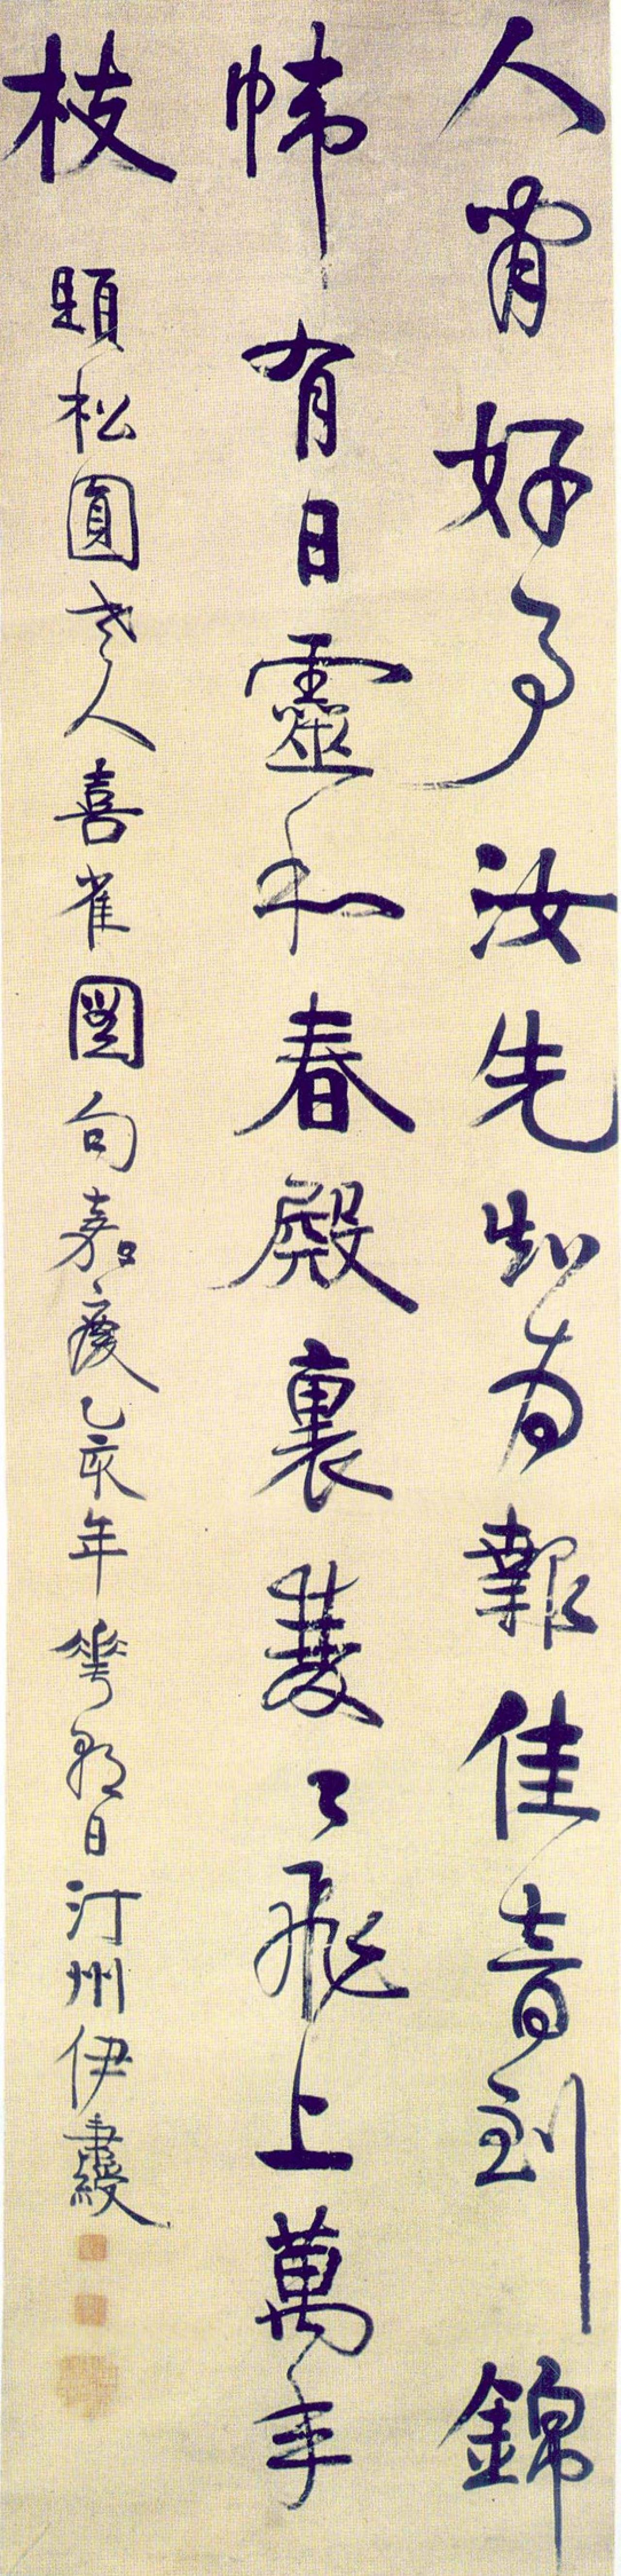 人間好事汝先知為報佳音到錦
幃有日靈和春殿裏雙〻飛上萬年
枝 題松圓老人喜雀圖句嘉慶乙亥年花朝日汀州伊秉綬